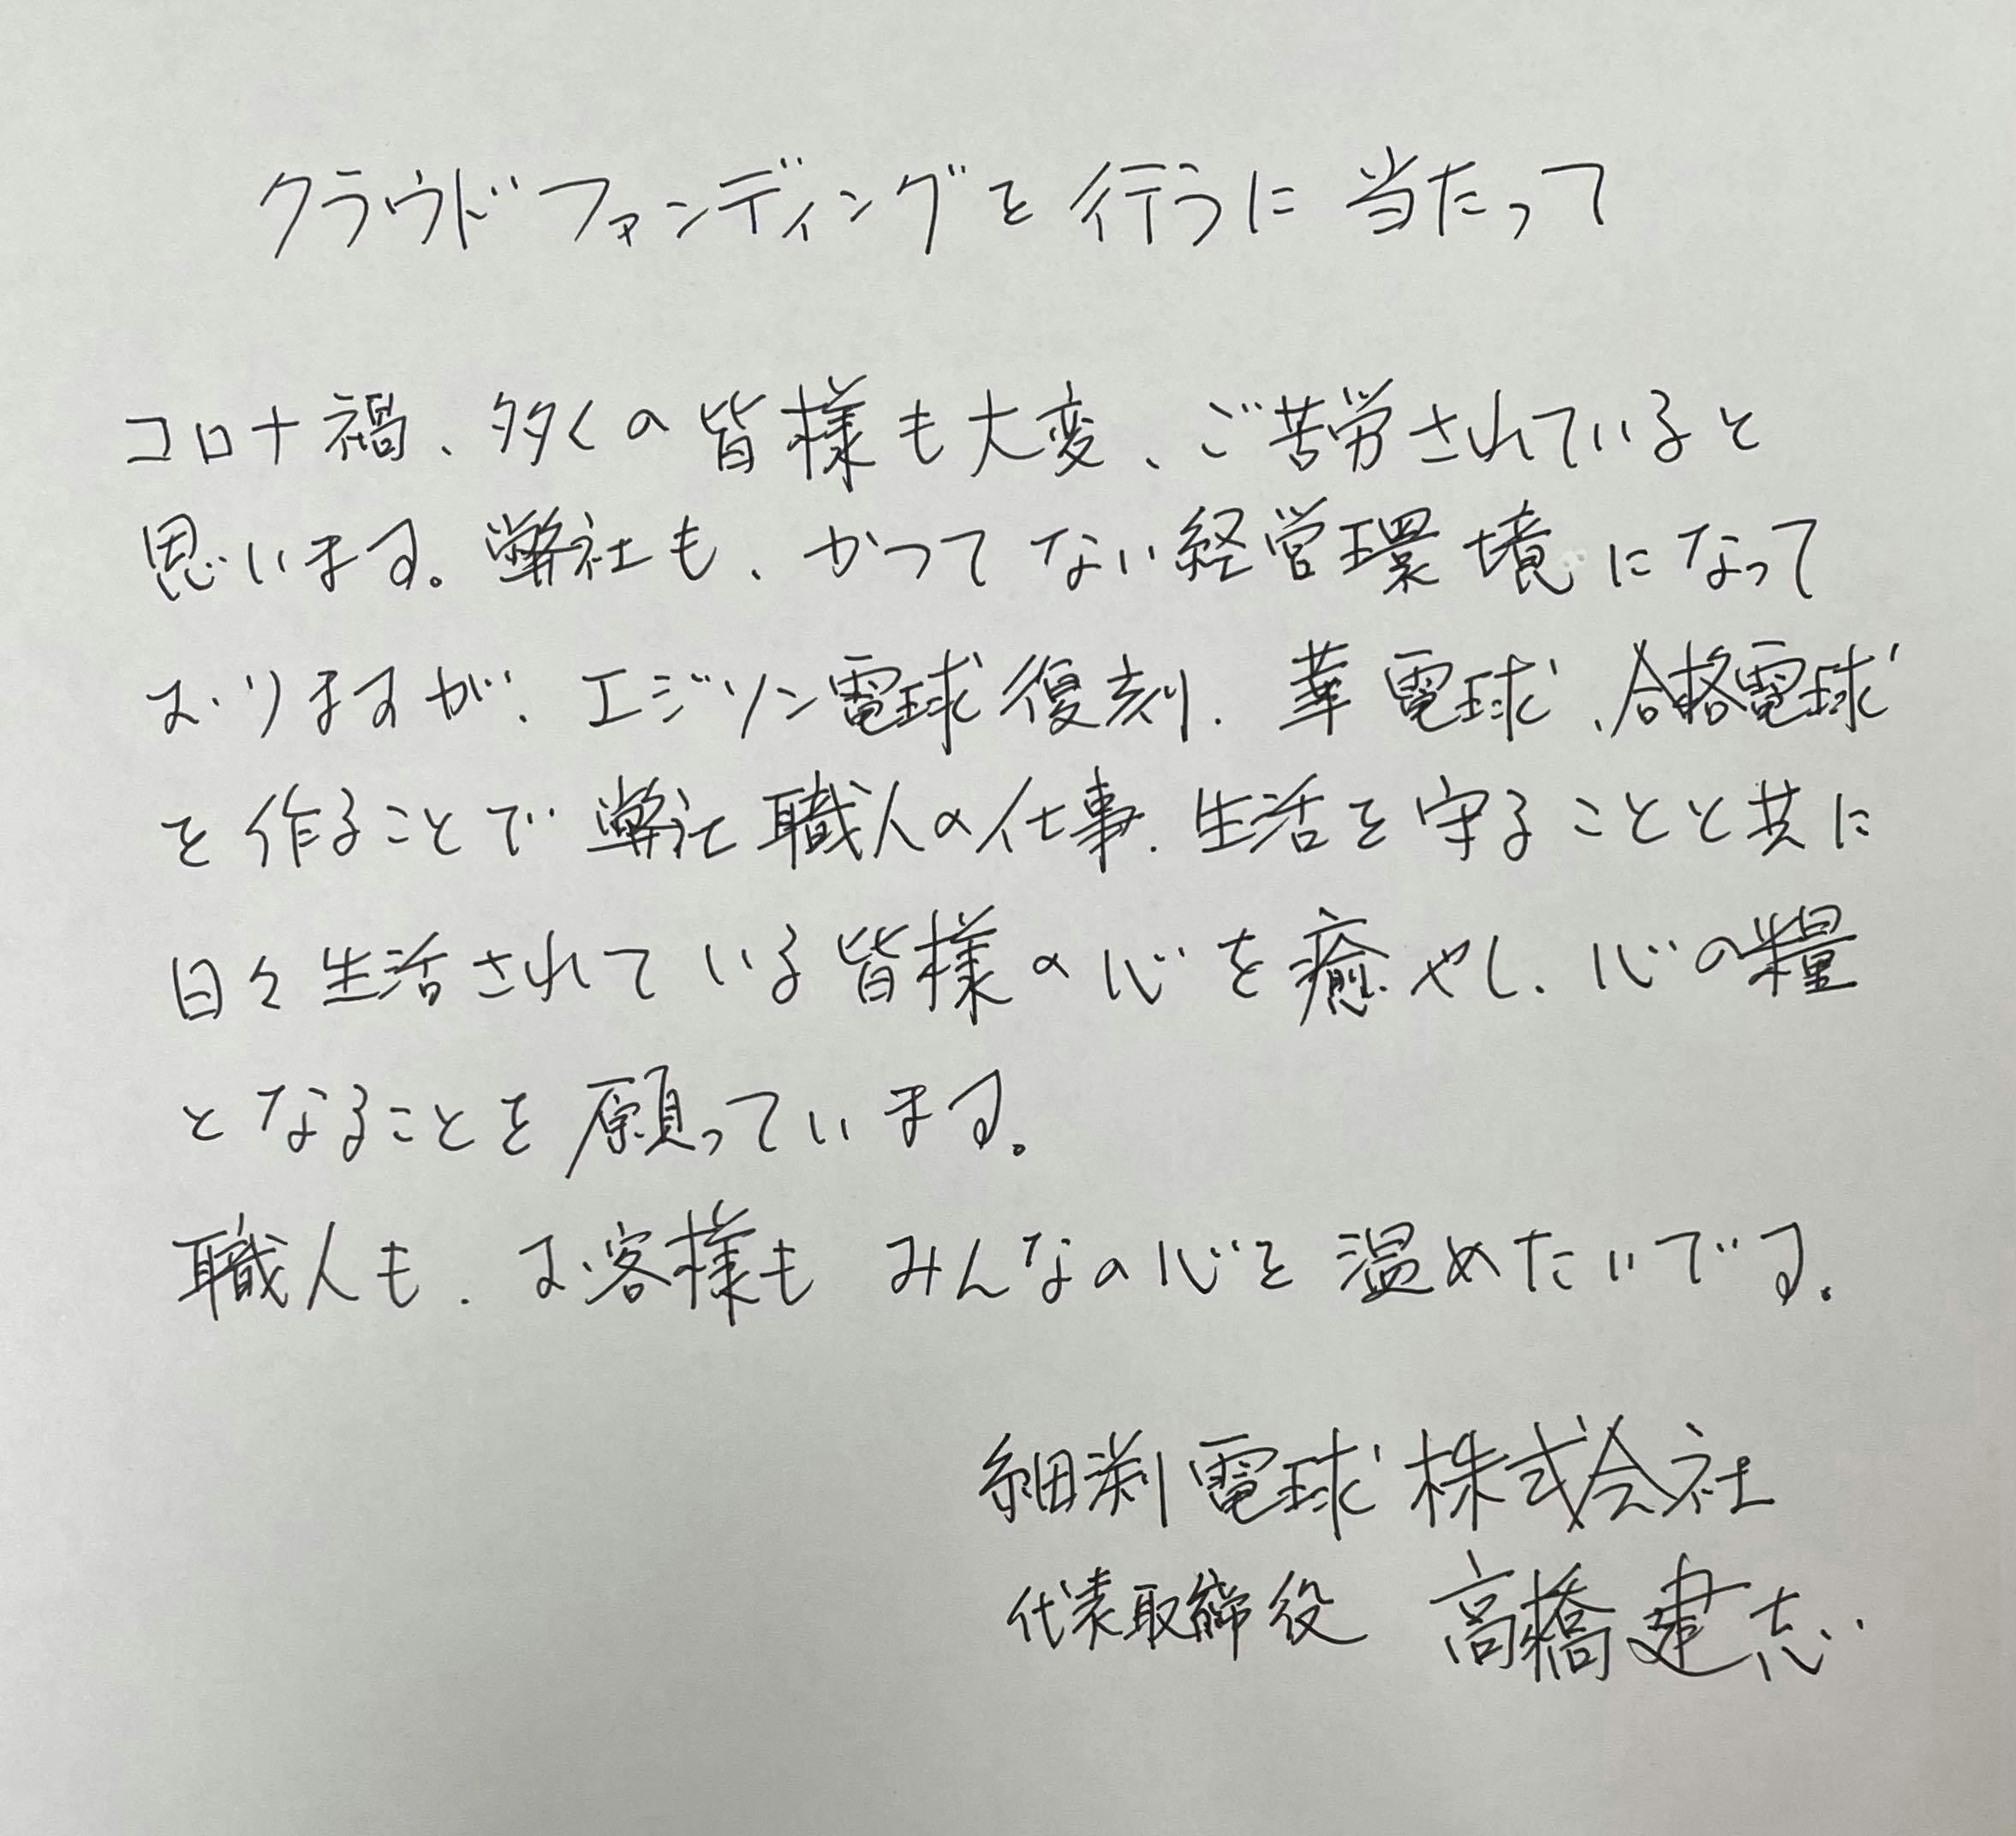 クラウドファンディングを行うに当たって
コロナ禍、多くの皆様も大変、ご苦労されていると
思います。弊社も、かつてない経営環境になって
おりますが、エジソン電球復刻、華電球、合格電球
を作ることで弊社職人の仕事、生活を守ることと共に
日々生活されている皆様の心を癒やし、心の糧
となることを願っています。
職人も、お客様も みんなの心を温めたいです。
細渕電球株式会社
代表取締役 高橋建志